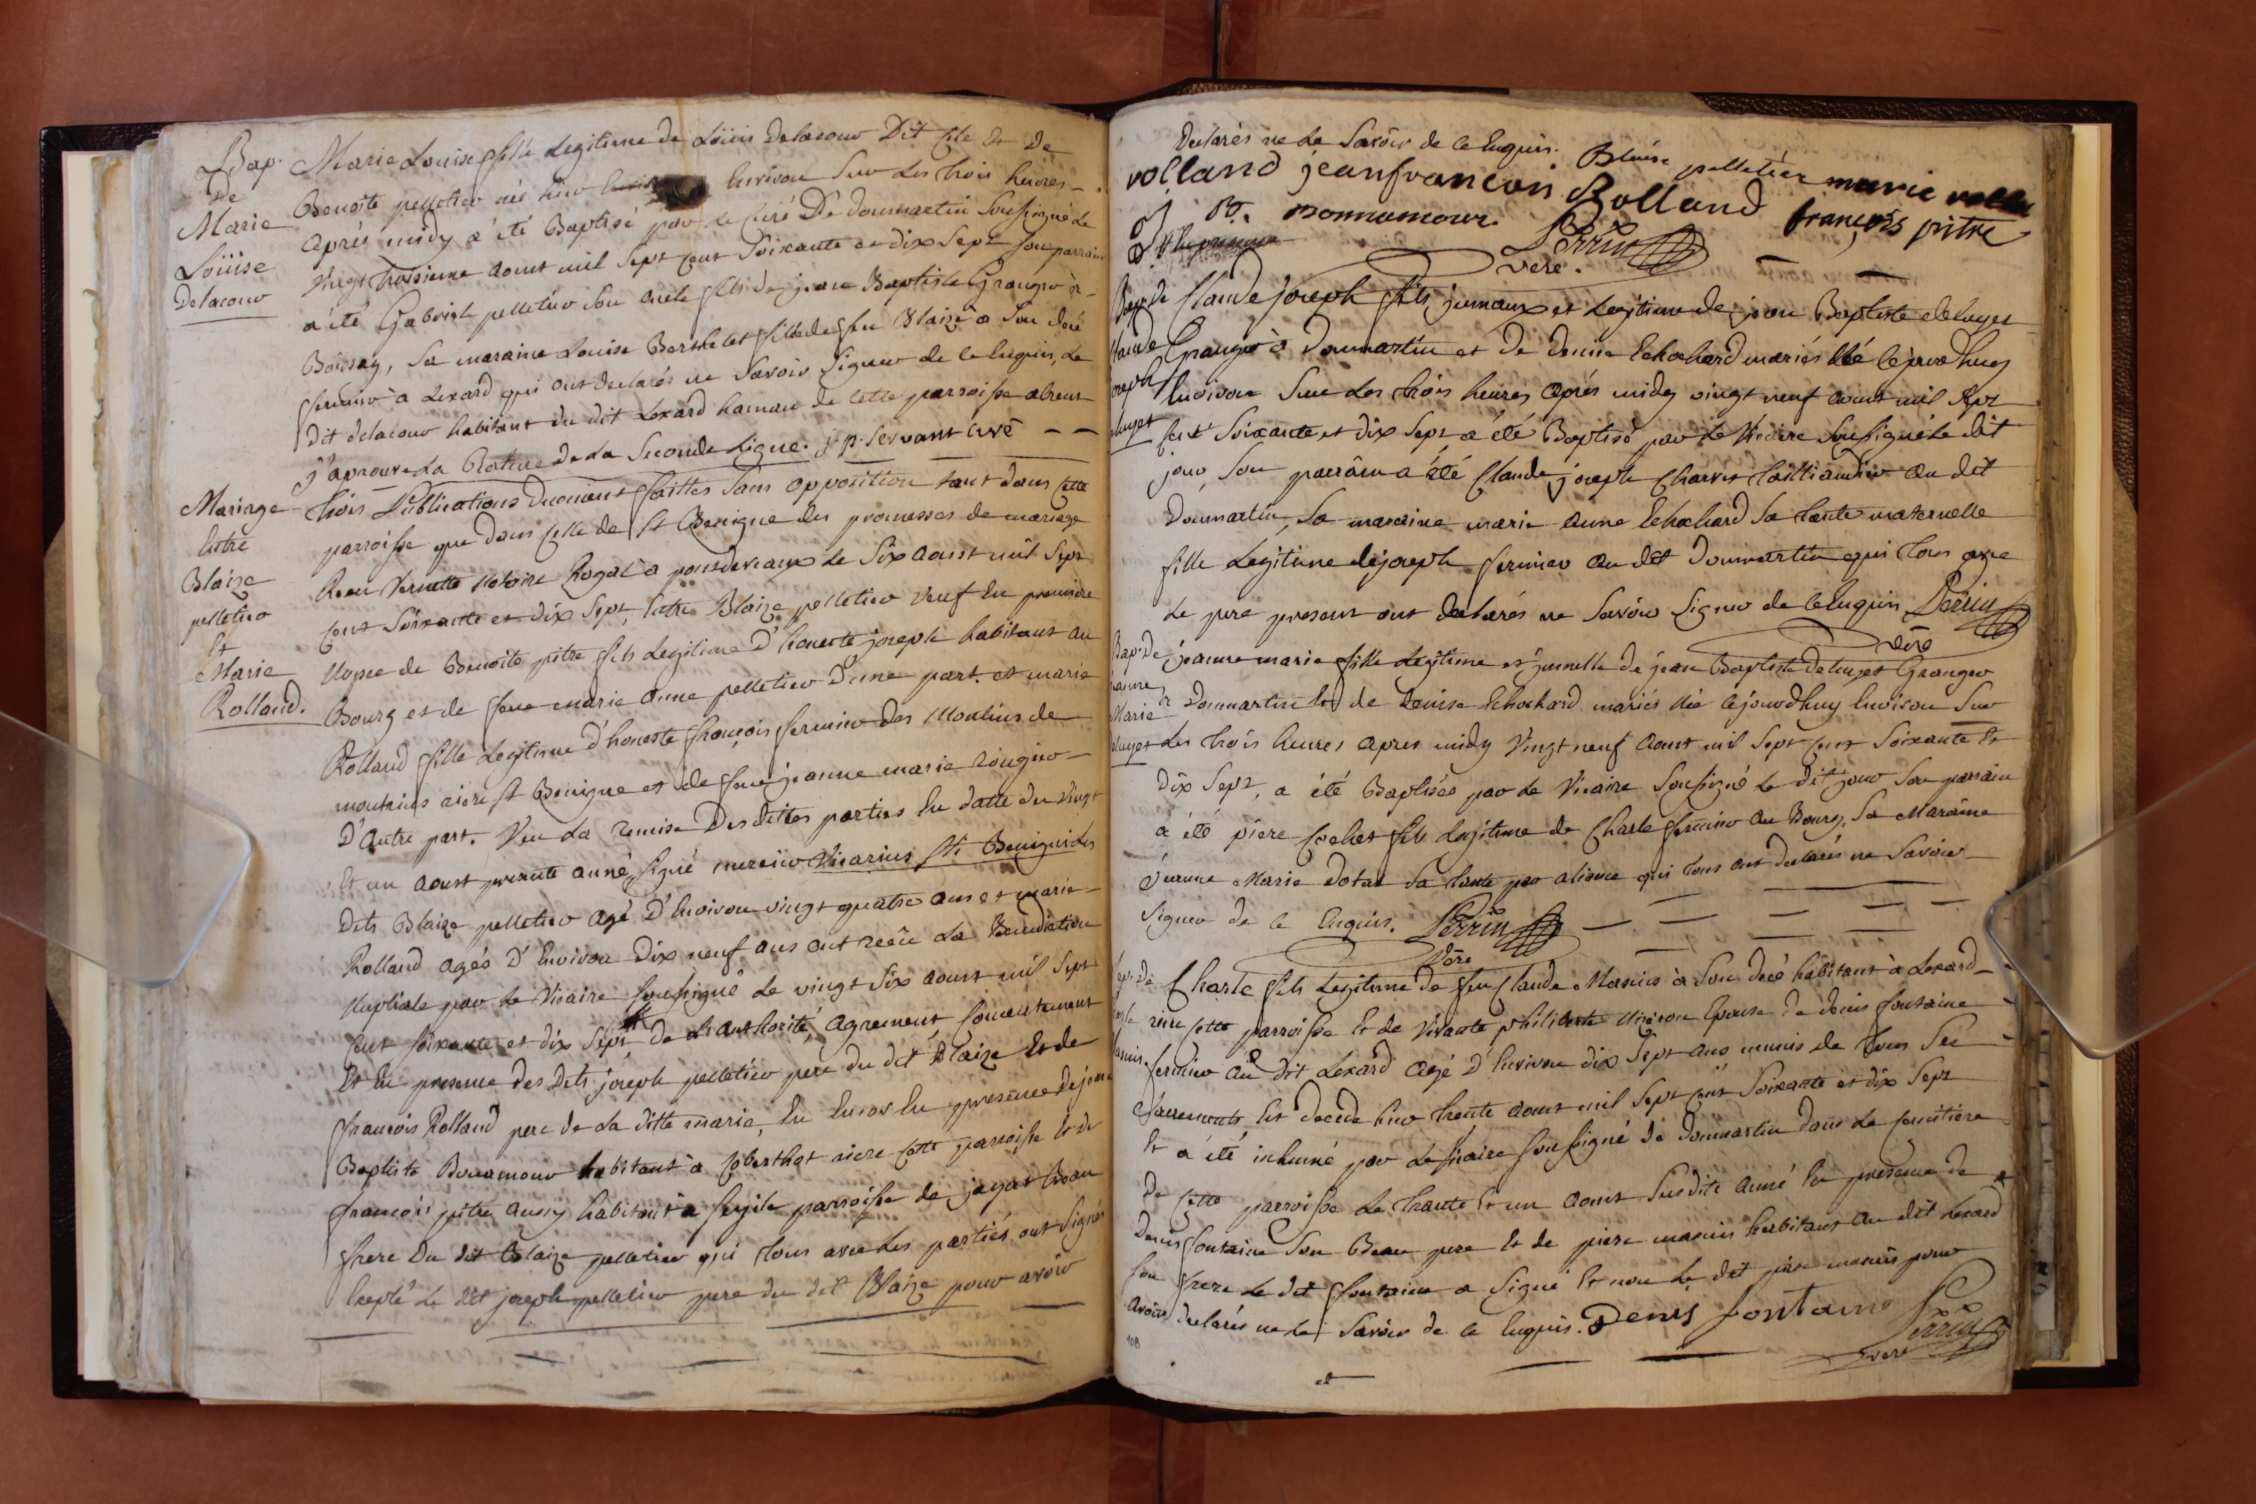 Bap.
de
Marie
Loüise
Delacour
Marie Louise fille Legitime de Loüis delacour Dit et De
Benoîte pelletier née hier Environ Sur Les trois heures
après midy a été Baptisé par Le Curé De dommartin Soussigné Le
vingt troisieme aoust mil Sept cent Soixante et dix Sept Son parrain
a été Gabriel pelletier Son oncle fils de jean Baptiste Granger à
Boissey, Sa maraine Louise Berthelet fille de feu Blaize a Son décé
fermier à Lexard qui ont declarés ne Savoir Signer de ce Enquis, Le
dit delacour habitant du dit Lexard hamau de cette parroisse absent
j'aprouve La Rature de La Seconde Ligne. j. p. Servant curé
Mariage
Entre
Blaize
pelletier
Et
Marie
Rolland.
trois Publications Duement faittes Sans opposition tant dans cette
parroisse que dans celle de St Benigne des promesses de mariage
Receu Vernette Notoire Royal a pondevaux Le Six aoust mil Sept
cent Soixante et dix Sept, Entre Blaize pelletier veuf En premiere
Nopce de Benoite pitre fils Legitime D'honeste joseph habitant au
Bourg et de feue marie anne pelletier D'une part. et marie
Rolland fille Legitime d'honeste François fermier des Moulins de
montains riere St Benigne et de feue jeanne marie
D'autre part. Veu La remise Des dittes parties En datte du vingt
Et un Aoust presente année Signé mercier Vicarius Sti Benigni Les
Dits Blaize pelletier agé D'Environ vingt quatre ans et marie
Rolland agés D'Environ Dix neuf ans ont receü La Benediction
Nuptiale par Le Vicaire Soussigné Le vingt Six aoust mil Sept
cent Soixante et dix Sept de L'authorité, Agrement Consentement
Et En presence des Dits joseph pelletier pere du dit Blaize Et de
François Rolland pere de La ditte marie, En Encor En presence de jean
Baptiste Bonamour habitant à riere cette parroisse Et de
François pitre aussy habitant a parroisse de jayat Beau
frere Du dit Blaize pelletier qui tous avec Les parties ont Signé
Excepté Le dit joseph pelletier pere du dit Blaize pour avoir
declarés ne Le Savoir de ce Enquis. Blaise pelletier marie
rolland jean francoui Rolland françois pitre
B. Bonnamour Perrin
vere.
Bap. de
Claude joseph fils jumeaux et Legitime de jean Baptiste deluget
Granger à Dommartin et de denise Echochard mariés Né ce jourd'huy
Environ Sur Les trois heures après midy vingt neuf aoust mil Sept
cent Soixante et dix Sept a été Baptisé par Le Vicaire Soussigné Le dit
jour, Son parrain a été Claude joseph Charvet taillandier au dit
Dommartin, Sa maraine marie anne Echochard Sa tante maternelle
fille Legitime de joseph fermier au dit Dommartin qui tous avec
Le pere present ont declarés ne Savoir Signer de ce Enquis Perrin
vere
Bap. De
Marie
jeanne marie fille Legitime et jumelle de jean Baptiste deluget Granger
à Dommartin Et de Denise Echochard mariés Née ce jourdhuy Environ Sur
Les trois heures apres midy vingt neuf aoust mil Sept cent Soixante Et
Dix Sept, a été Baptisée par Le Vicaire Soussigné Le dit jour Son parrain
a été piere fils Legitime de Charle fermier au Bourg, Sa Maraine
jeanne Marie dotat Sa tante par aliance qui tous ont declarés ne Savoir
Signer de ce Enquis. Perrin
vere
Charle fils Legitime de feu Claude Manuis à Son decé habitant à Lexard
riere cette parroisse Et de Vivante philiberte Epouse de denis fontaine
fermier au dit Lexard agé d'Environ dix Sept ans munis de tous Ses
Sacrements Est decedé hier trente aoust mil Sept cent Soixante et dix Sept
Et a été inhumé par Le Vicaire Soussigné de Dommartin dans Le Cemitiere
De cette parroisse Le trante Et un aoust Susdite année En presence de
Denis fontaine Son Beau pere Et de piere manuis habitant au dit Lexard
Son frere Le dit fontaine a Signé Et non Le dit piere manuis pour
Avoir declarés ne Le Savoir de ce Enquis. Denis fontaine Perrin
vere
108